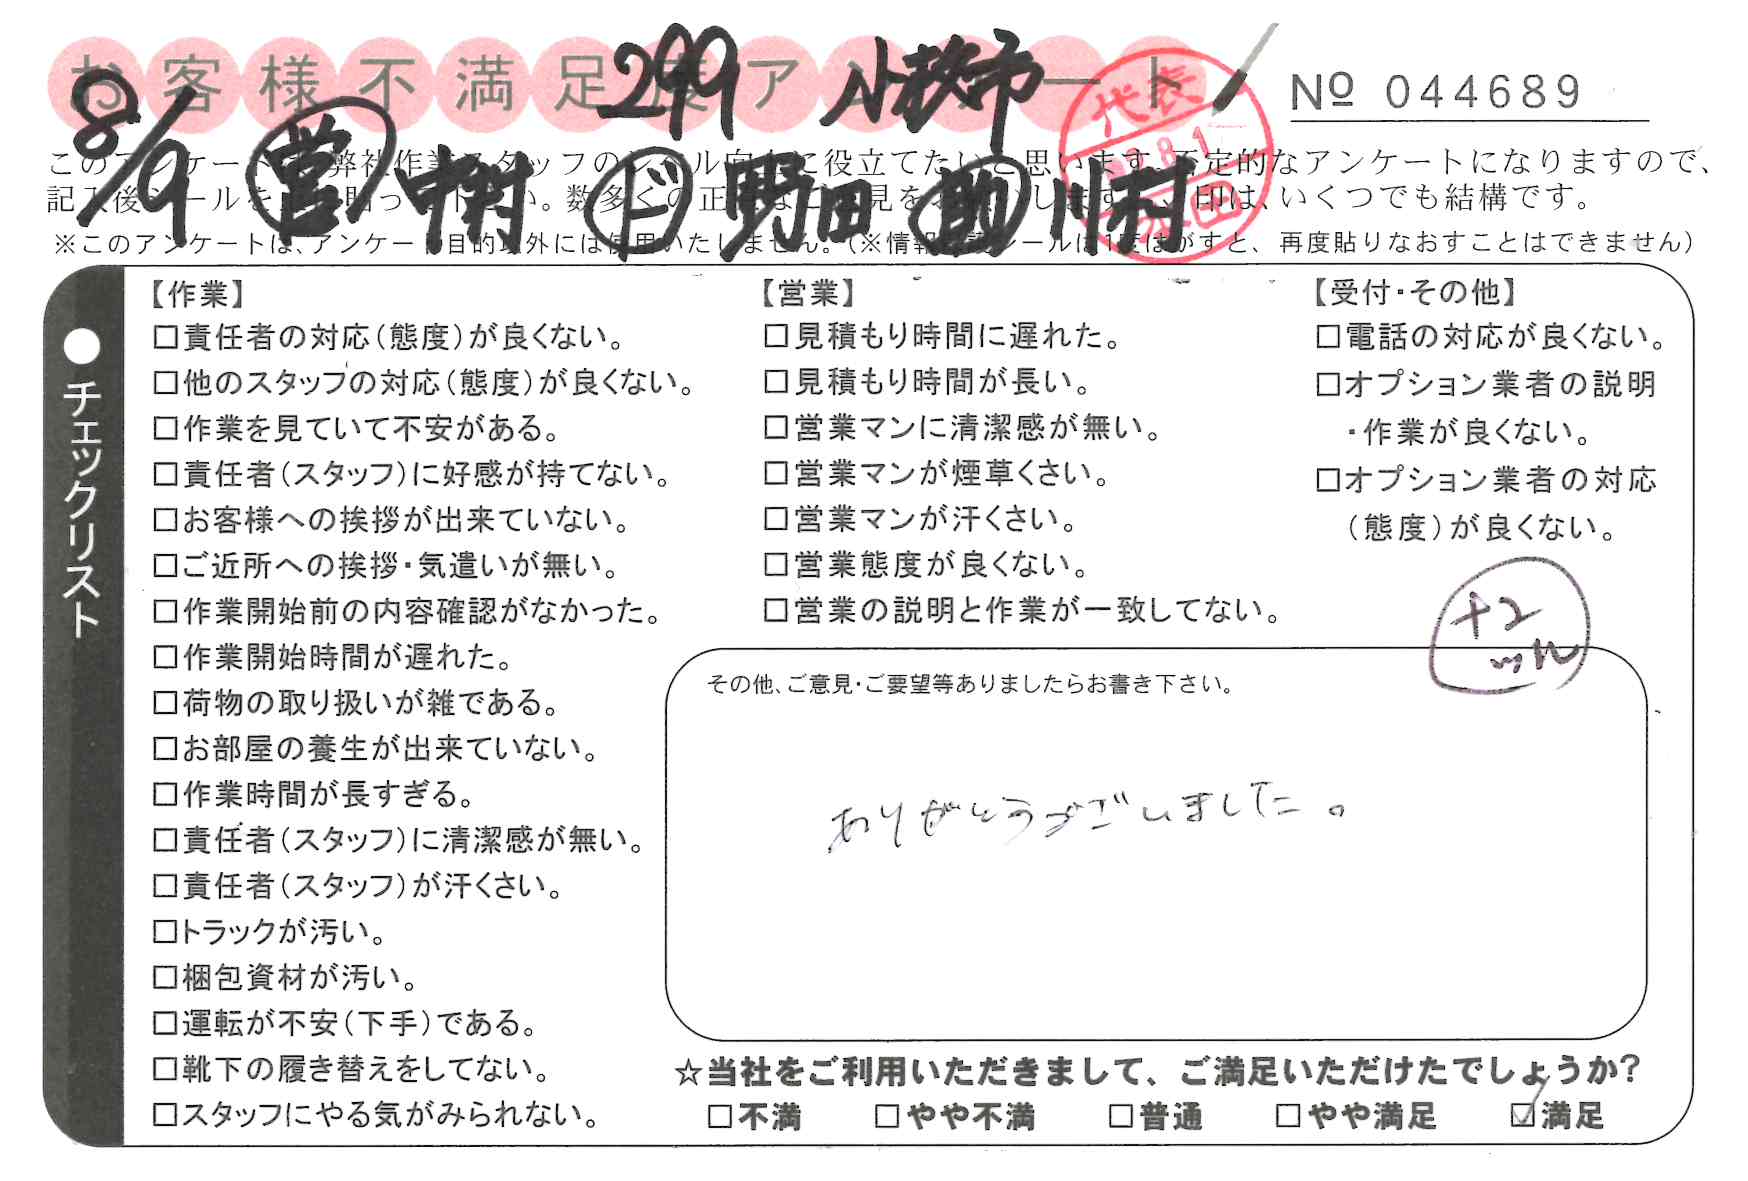 お客様不満足度アンケート
№ 044689
8/9 299 小牧市
営 中村 ド 野田 助 川村
代表
このアンケートは、弊社作業スタッフのレベル向上に役立てたいと思います。否定的なアンケートになりますので、
記入後シールを 貼って下さい。数多くの正 ご意見をお願いします。 印は、いくつでも結構です。
※このアンケートは、アンケート目的以外には使用いたしません。(※情報 シールは1度はがすと、再度貼りなおすことはできません)
●チェックリスト
【作業】
□責任者の対応(態度)が良くない。
□他のスタッフの対応(態度)が良くない。
□作業を見ていて不安がある。
□責任者(スタッフ)に好感が持てない。
□お客様への挨拶が出来ていない。
□ご近所への挨拶・気遣いが無い。
□作業開始前の内容確認がなかった。
□作業開始時間が遅れた。
□荷物の取り扱いが雑である。
□お部屋の養生が出来ていない。
□作業時間が長すぎる。
□責任者(スタッフ)に清潔感が無い。
□責任者(スタッフ)が汗くさい。
□トラックが汚い。
□梱包資材が汚い。
□運転が不安(下手)である。
□靴下の履き替えをしてない。
□スタッフにやる気がみられない。
【営業】
□見積もり時間に遅れた。
□見積もり時間が長い。
□営業マンに清潔感が無い。
□営業マンが煙草くさい。
□営業マンが汗くさい。
□営業態度が良くない。
□営業の説明と作業が一致してない。
【受付・その他】
□電話の対応が良くない。
□オプション業者の説明
・作業が良くない。
□オプション業者の対応
(態度)が良くない。
+2
その他、ご意見・ご要望等ありましたらお書き下さい。
ありがとうございました。
☆当社をご利用いただきまして、ご満足いただけたでしょうか?
□不満 □やや不満 □普通 □やや満足 ☑満足